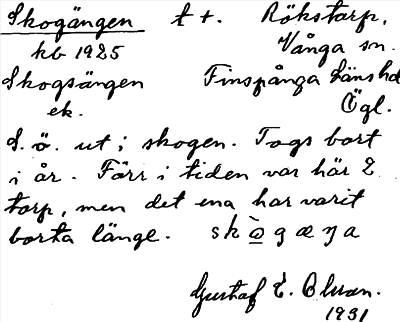 Skogängen t +. Rökstorp,
kb 1925 Vånga sn.
Skogsängen Finspånga länshd
ek. Ögl.
S. ö. ut i skogen. Togs bort
i år. Förr i tiden var här 2
torp, men det ena har varit
borta länge. skògæŋa
Gustaf E. Olsson.
1931